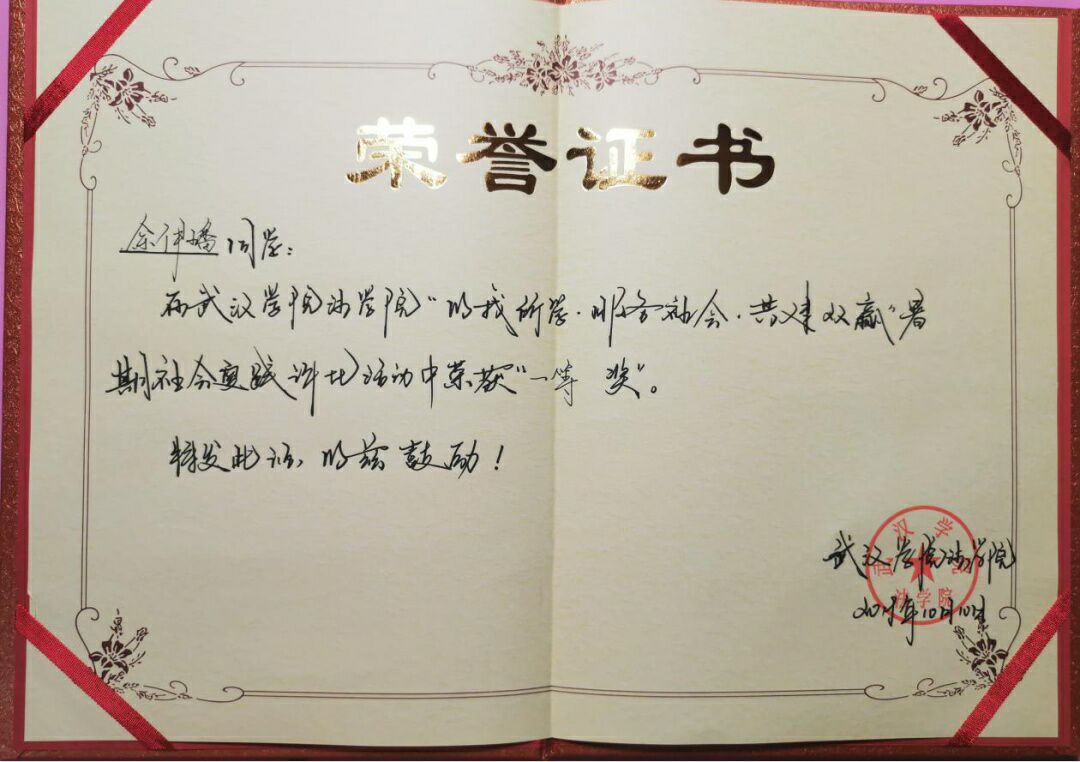 荣誉证书
同学：
在武汉学院法学院“以我所学·服务社会·共建双赢”暑
期社会实践评比活动中荣获“一等 奖”。
特发此证，以兹鼓励！
武汉学院法学院
年10月10日
武汉学院
法学院